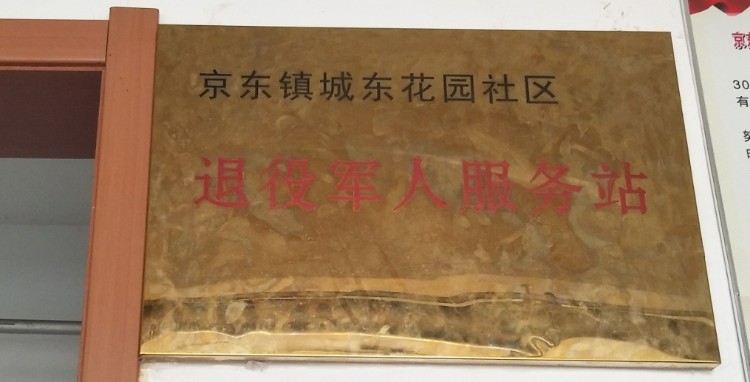 京东镇城东花园社区
退役军人服务站
30
有